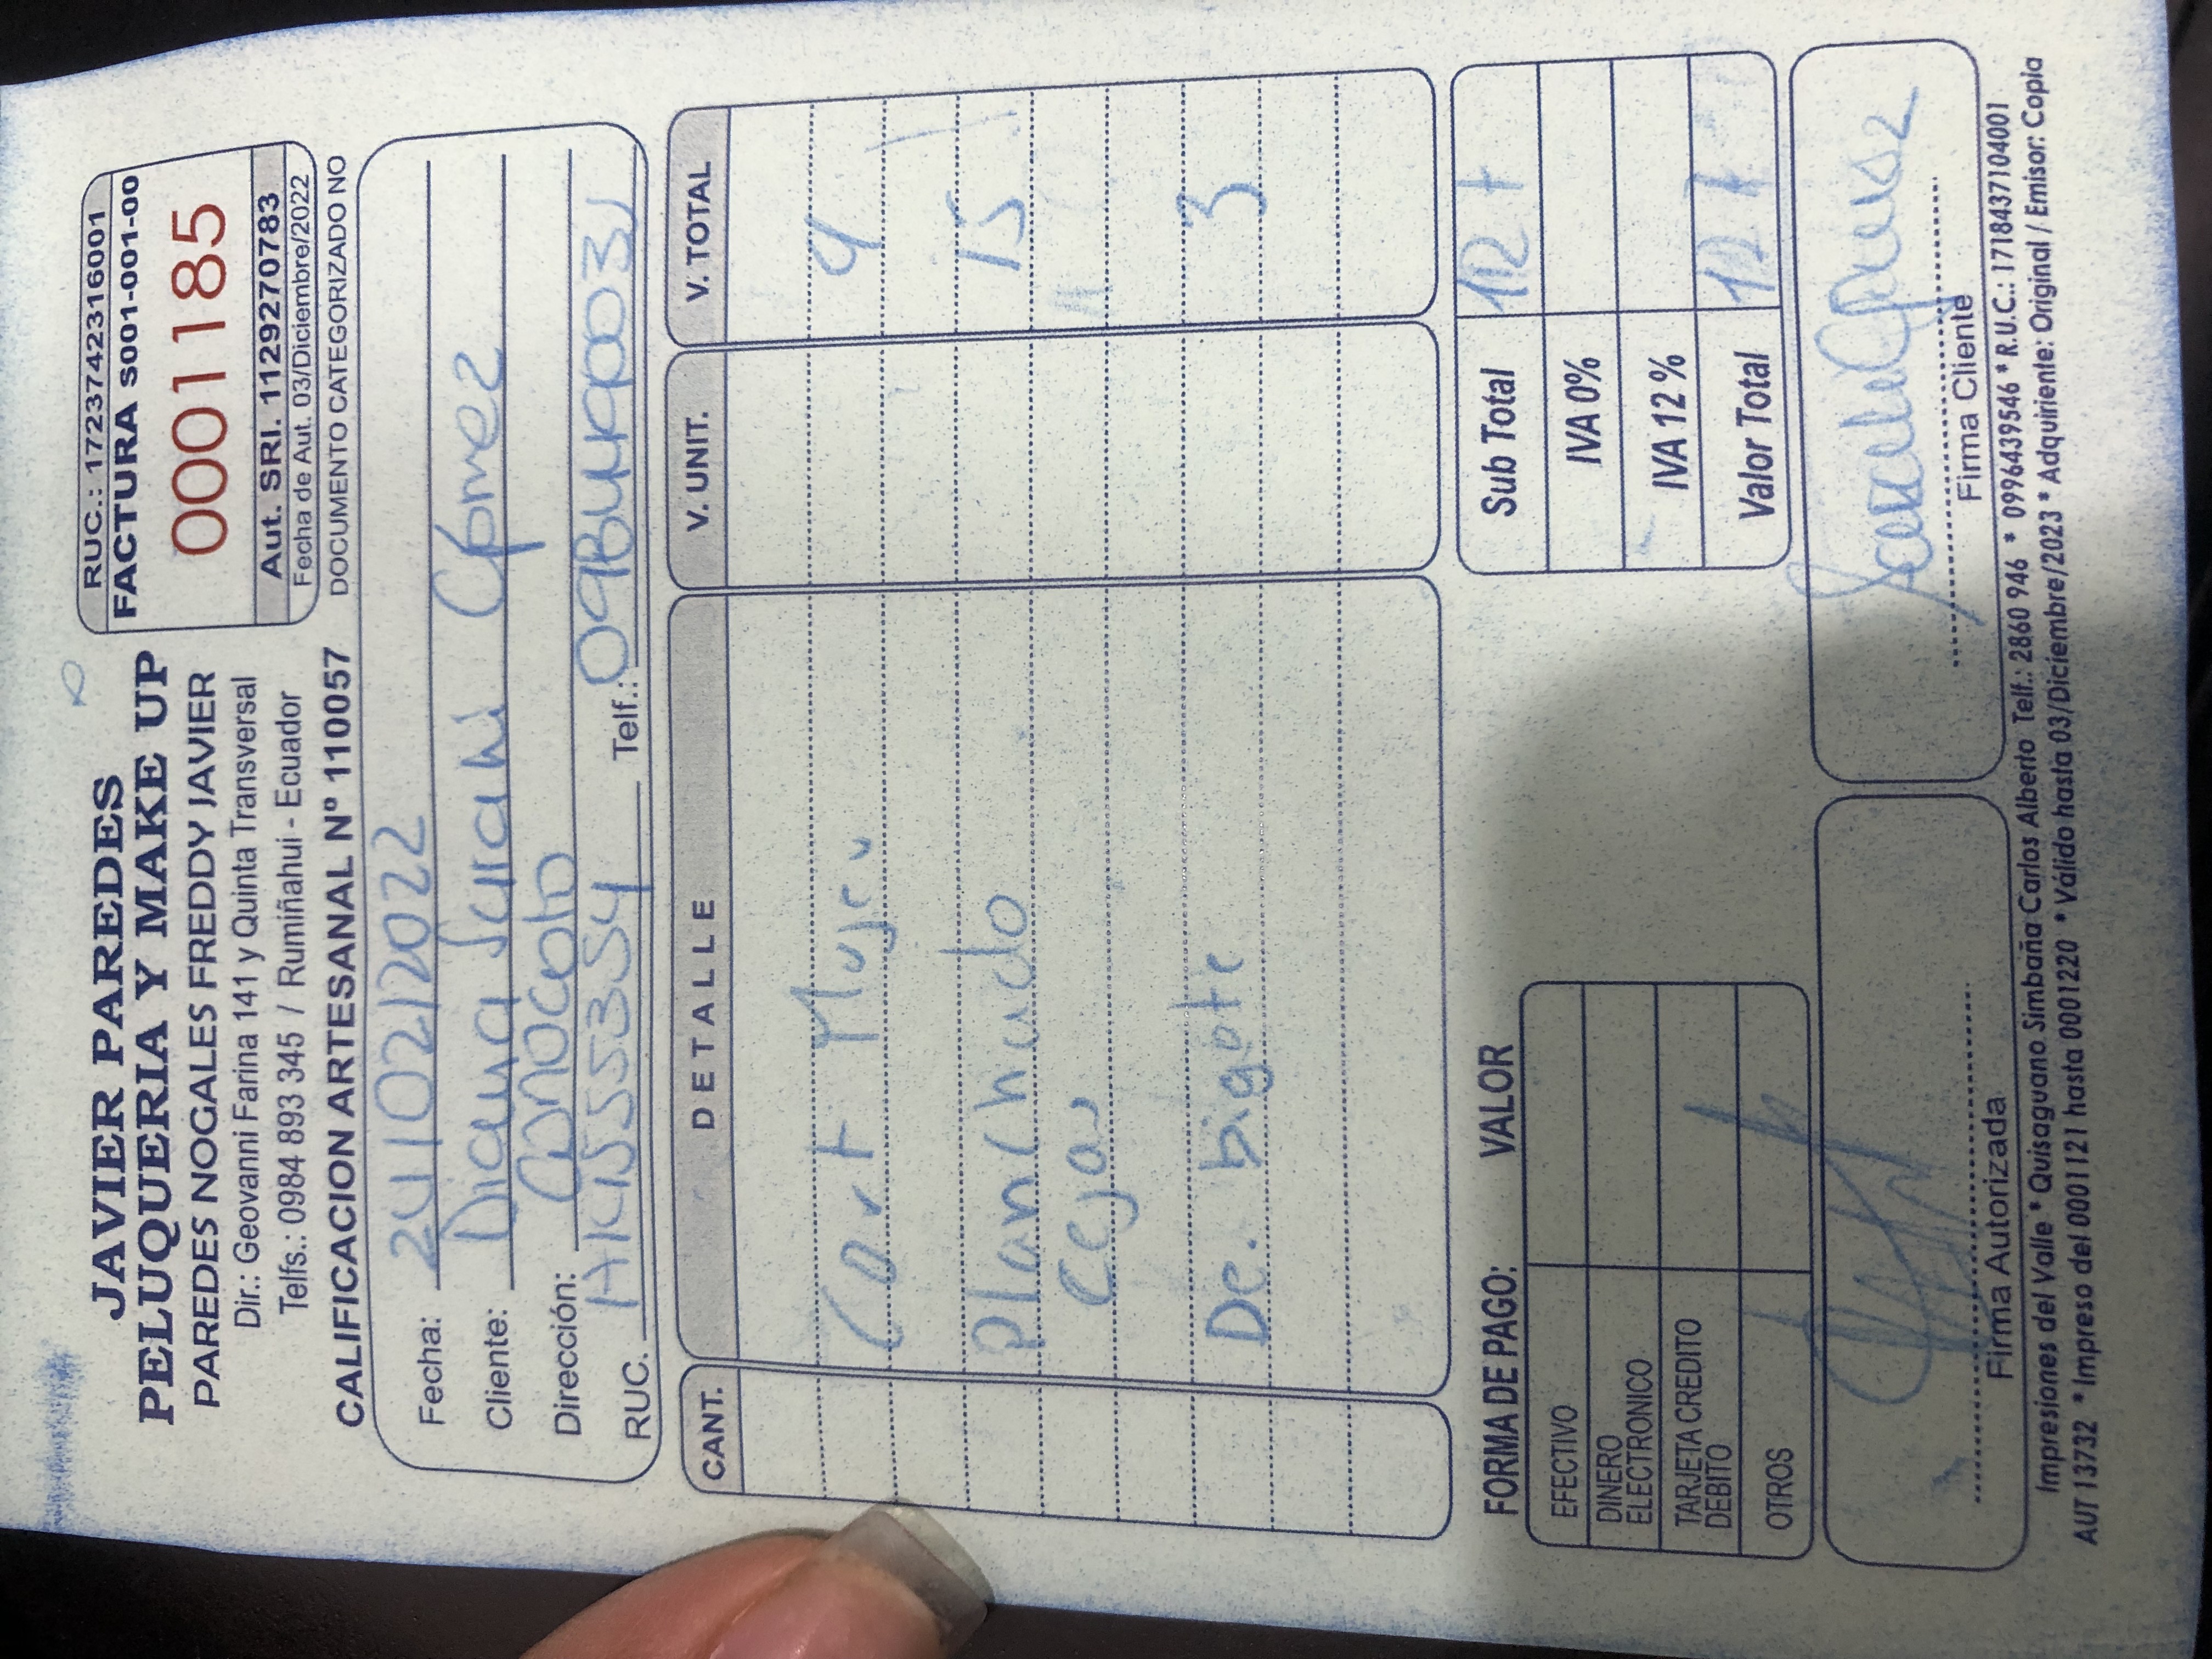 JAVIER PAREDES
PELUQUERIA Y MAKE UP
PAREDES NOGALES FREDDY JAVIER
Dir.: Geovanni Farina 141 y Quinta Transversal
Telfs.: 0984 893 345 / Rumiñahui - Ecuador
CALIFICACION ARTESANAL Nº 110057
RUC.: 1723742316001
FACTURA S001-001-00
0001185
Aut. SRI. 1129270783
Fecha de Aut. 03/Diciembre/2022
DOCUMENTO CATEGORIZADO NO
Fecha: 24/02/2022
Cliente: Diana Sarahi Gómez
Dirección: Conocoto
RUC. Telf.:
CANT. DETALLE V. UNIT. V. TOTAL
Cort Mujer 9
Planchado 15
Cejas
De. bigote 3
FORMA DE PAGO: VALOR
EFECTIVO
DINERO ELECTRONICO
TARJETA CREDITO DEBITO
OTROS
Sub Total
IVA 0%
IVA 12 %
Valor Total
Firma Autorizada
Firma Cliente
Impresiones del Valle * Quisaguano Simbaña Carlos Alberto Telf.: 2860 946 * 0996439546 * R.U.C.: 1718437104001
AUT 13732 * Impreso del 0001121 hasta 0001220 * Válido hasta 03/Diciembre/2023 * Adquiriente: Original / Emisor: Copia